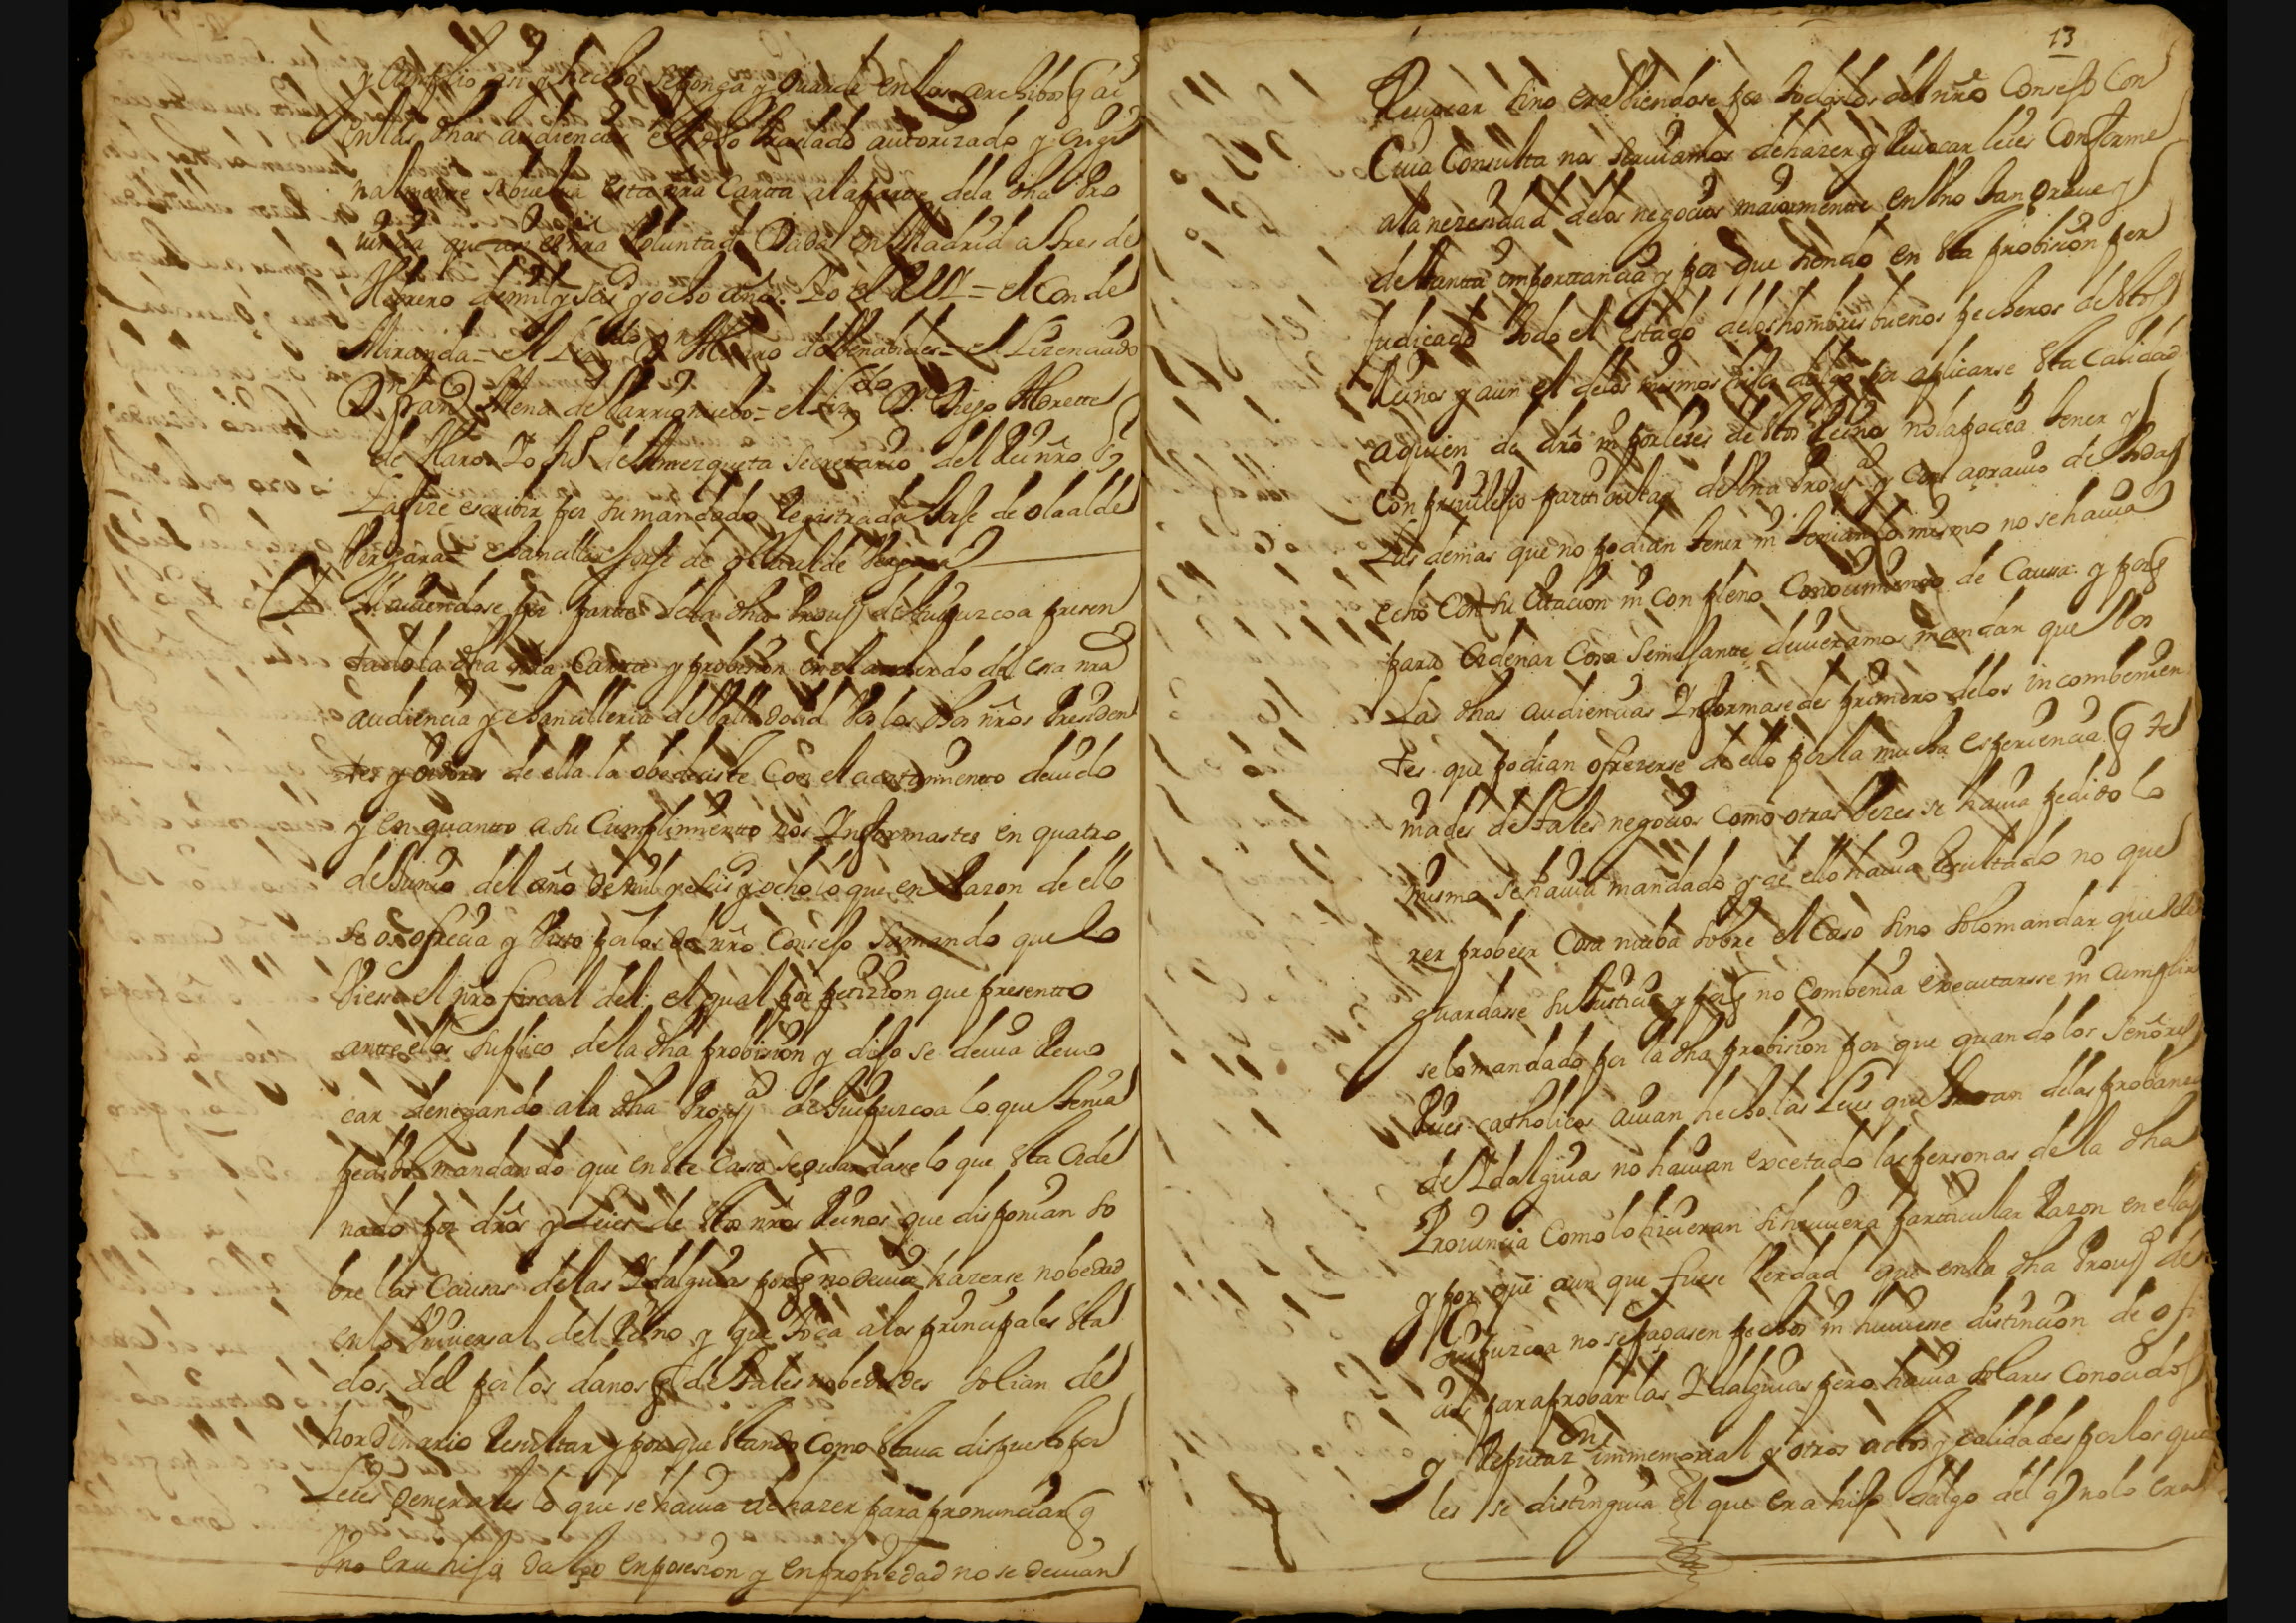 y Cumplio asi y hecho se ponga y Guarde en los archibos q ai
en las dhas audiencias el dho traslado autorizado y origi
nalmente se buelva esta nra Carta ala parte dela dha Pro
vincia que asi es nra voluntad Dada en Madrid a tres de
Febrero de mil y seis y ocho años. Yo el REY = el Conde
Miranda = el Lizdo Dn Alvaro de Benabides = el Lizenciado
Dn Frand Mena de Barrionuebo = el Lizdo Dn Diego Aldrete
de Haro = Yo Jul de Amezqueta Secretario del Rei nro Sr
La fize escribir por su mandado Registrada Jorje de olaalde
Vergara = chanciller Jorje de olaalde Vergara
Y haviendose por parte dela dha Prova de Guipuzcoa presen
tado la dha nra Carta y probision en el acuerdo del esa nra
audiencia y chancilleria de Valladolid Por los dhos nros Presiden
tes y oidores de ella la obedeciste Con el acatamiento devido
y en quanto a su Cumplimiento nos Informastes en quatro
de Junio del año de mil y seis y ocho lo que en Razon de ello
se os ofrecia y Visto por los del nro Consejo se mando que lo
Viese el nro fiscal del: el qual por petizion que presento
ante ellos suplico de la dha probision y dijo se devia Revo
car denegando a la dha Prova de Guipuzcoa lo que tenia
pedido mandando que en este Caso se guardase lo que esta Orde
nado por dros y Leies de estos nros Reinos que disponian so
bre las Causas de las Idalguias porq no devia hazerse nobedad
en lo Universal del Reino y que toca a los principales esta
dos del por los danos q de tales nobedades solian de
hordinario Resultar y por que estando Como estava dispuesto por
Leies Generales lo que se havia de hazer para pronunciar q
Uno era hijo dalgo en posesion y en propiedad no se devian
13
Revocar sino es abiendose por todos los del nro Consejo Con
Cuia Consulta nos serviamos de hazer y Revocar leies Conforme
a la nezesidad de los negocios maiormente en Uno tan Grave y
de tanta importancia y por que siendo en esta probision per
Judicado todo el estado de los hombres buenos pecheros de estos
Reinos y aun el de los mismos hijos dalgo por aplicarse esta Calidad
a quien de dro ni por leies de estos Reinos no la podia tener y
Con privilejio particular de Una Prova y Con agravio de todas
Las demas que no podian tener ni tenian lo mismo no se havia
echo Con su Citacion ni con pleno Conocimiento de Causa. y porq
para Ordenar Cosa Semejante devieramos mandar que Vos
Las dhas audiencias Informasedes primero de los incombenien
tes que podian ofrezerse de ello por la mucha esperiencia q te
niades de tales negocios Como otras Vezes se havia pedido lo
mismo se havia mandado y de ello havia Resultado no que
rer probeer Cosa nueba sobre el Caso sino solo mandar que se les
guardase su Justicia y porq no Combenia executarsse ni Cumplir
se lo mandado por la dha probision por que quando los Señores
Reies catholicos avian hecho las Leies que tratan de las probanzas
de Idalguias no havian excetado las personas de la dha
Provincia Como lo hivieran si huviera particular Razon en ella
y por que aun que fuese Verdad que en la dha Prova de
Guipuzcoa no se pagasen pechos ni huviese distincion de ofi
cios para probar las Idalguias pero havia solares Conocidos
y Reputazon immemorial y otros actos y calidades por los qua
les se distinguia El que era hijo dalgo del q no lo era